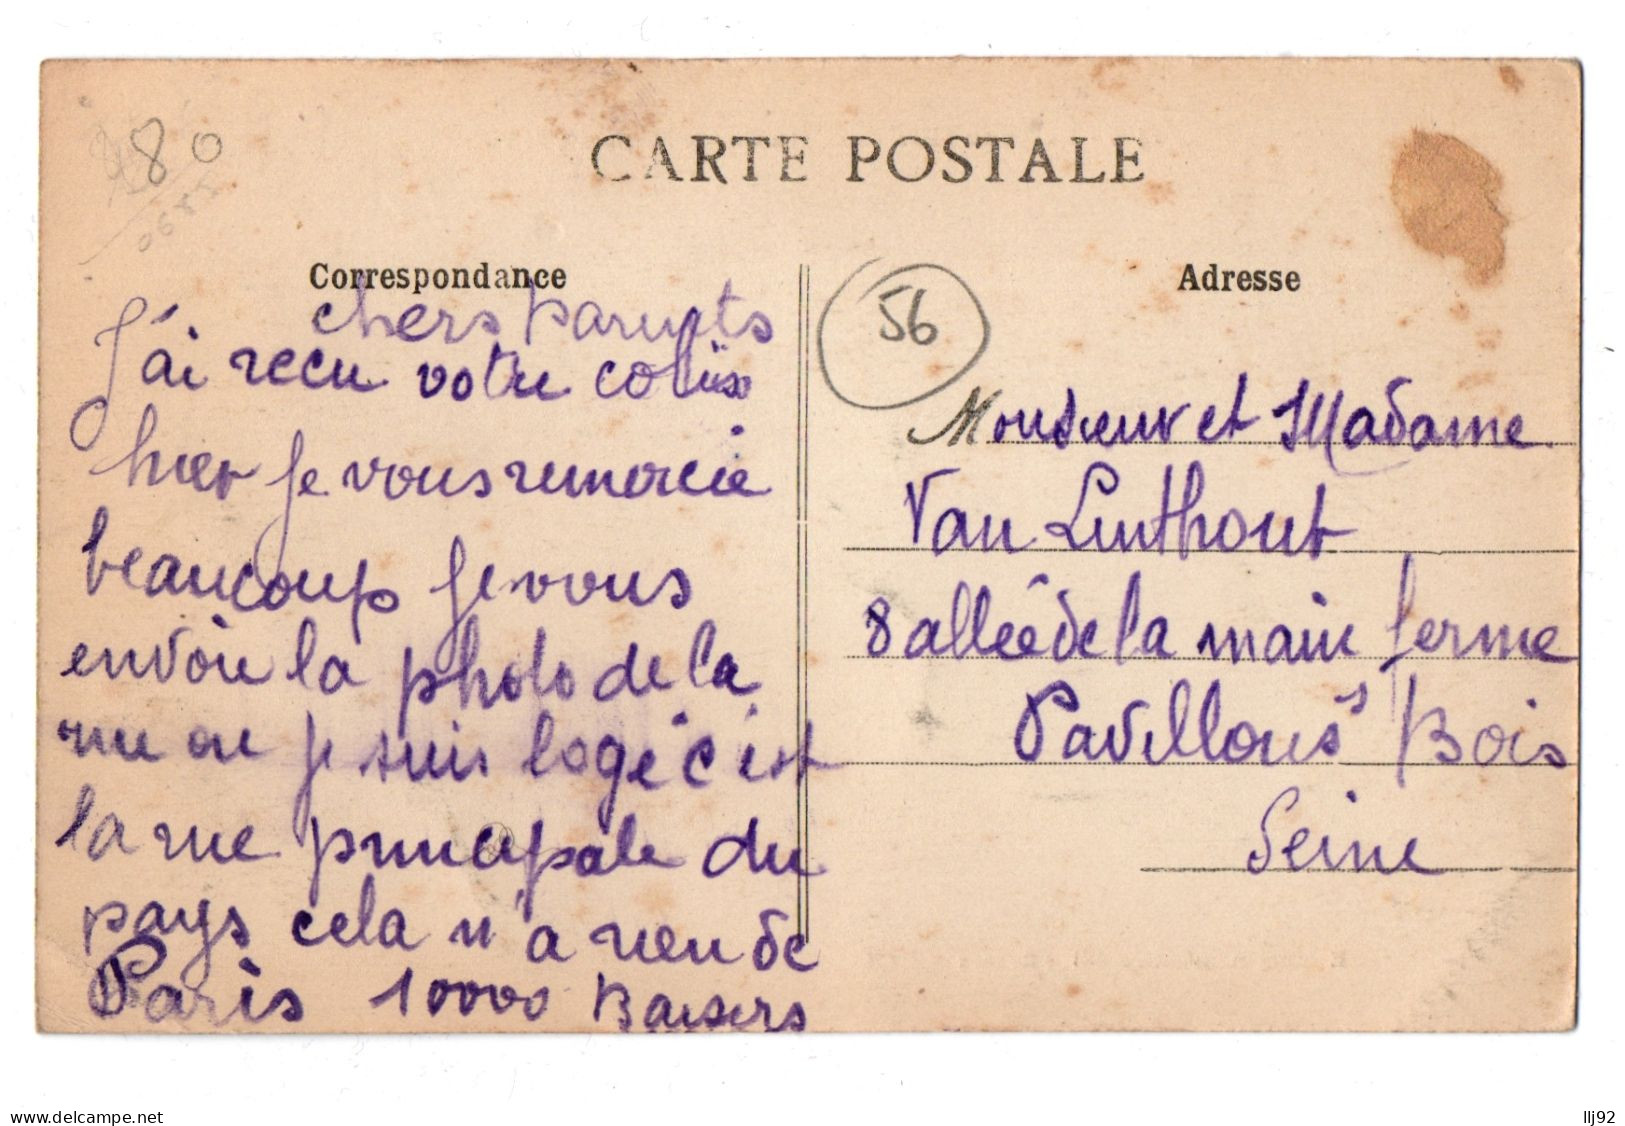 80
CARTE POSTALE
Correspondance
chers Parents
J'ai recu votre colis
hier je vous remercie
beaucoup je vous
envoie la photo de la
rue ou je suis logé c'est
la rue principale du
pays cela n'a rien de
Paris 10000 Baisers
56
Adresse
Monsieur et Madame
Van Linthout
8 allée de la main ferme
Pavillons s Bois
Seine
www.delcampe.net
llj92